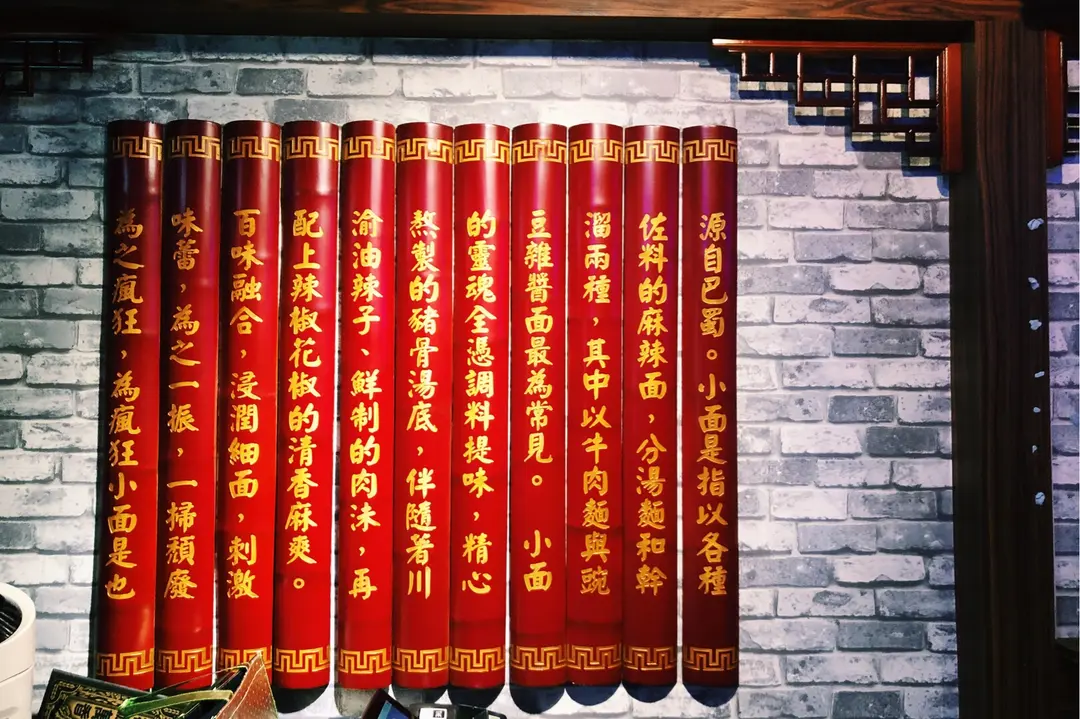 源自巴蜀。小面是指以各種
佐料的麻辣面，分湯麵和幹
溜兩種，其中以牛肉麵與豌
豆雜醬面最為常見。 小面
的靈魂全憑調料提味，精心
熬製的豬骨湯底，伴隨着川
渝油辣子、鮮制的肉沫，再
配上辣椒花椒的清香麻爽。
百味融合，浸潤細面，刺激
味蕾，為之一振，一掃頹廢
為之瘋狂，為瘋狂小面是也